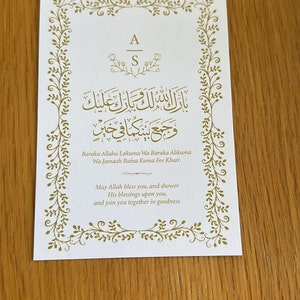 A
S
بَارَكَ اللهُ لَكَ وَبَارَكَ عَلَيْكَ
وَجَمَعَ بَيْنَكُمَا فِي خَيْرٍ
Baraka Allahu Lakuma Wa Baraka Alikuma
Wa Jamaah Baina Kuma Fee Khair.
May Allah bless you, and shower
His blessings upon you,
and join you together in goodness.